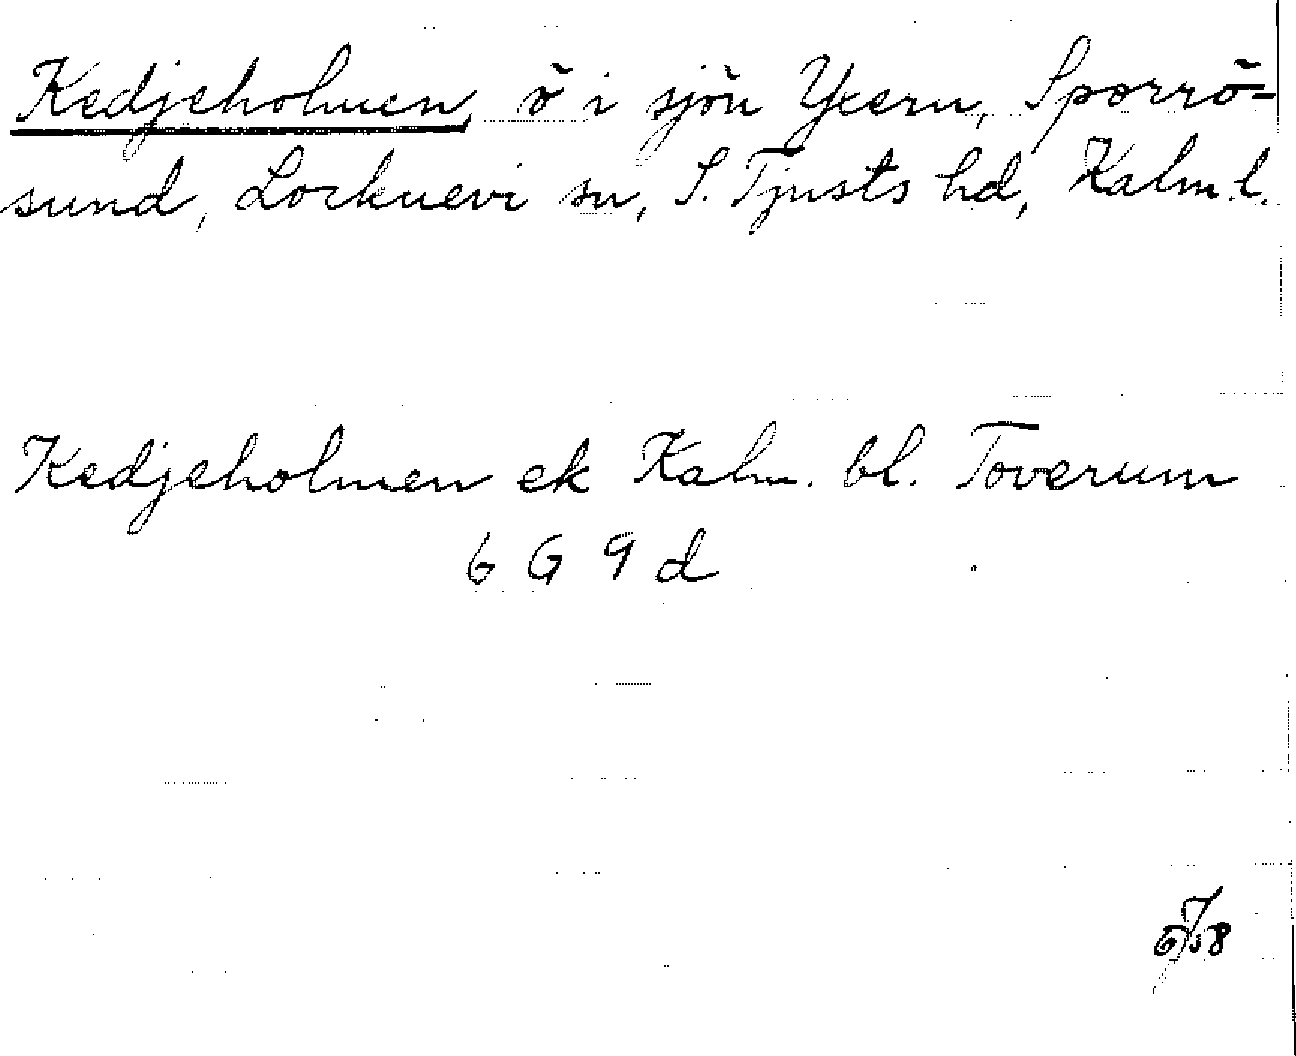 Kedjeholmen, ö i sjön Yxern, Sporrö-
sund, Locknevi sn, S. Tjusts hd, Kalm. l.
Kedjeholmen ek Kalm. bl. Toverum
6 G 9 d